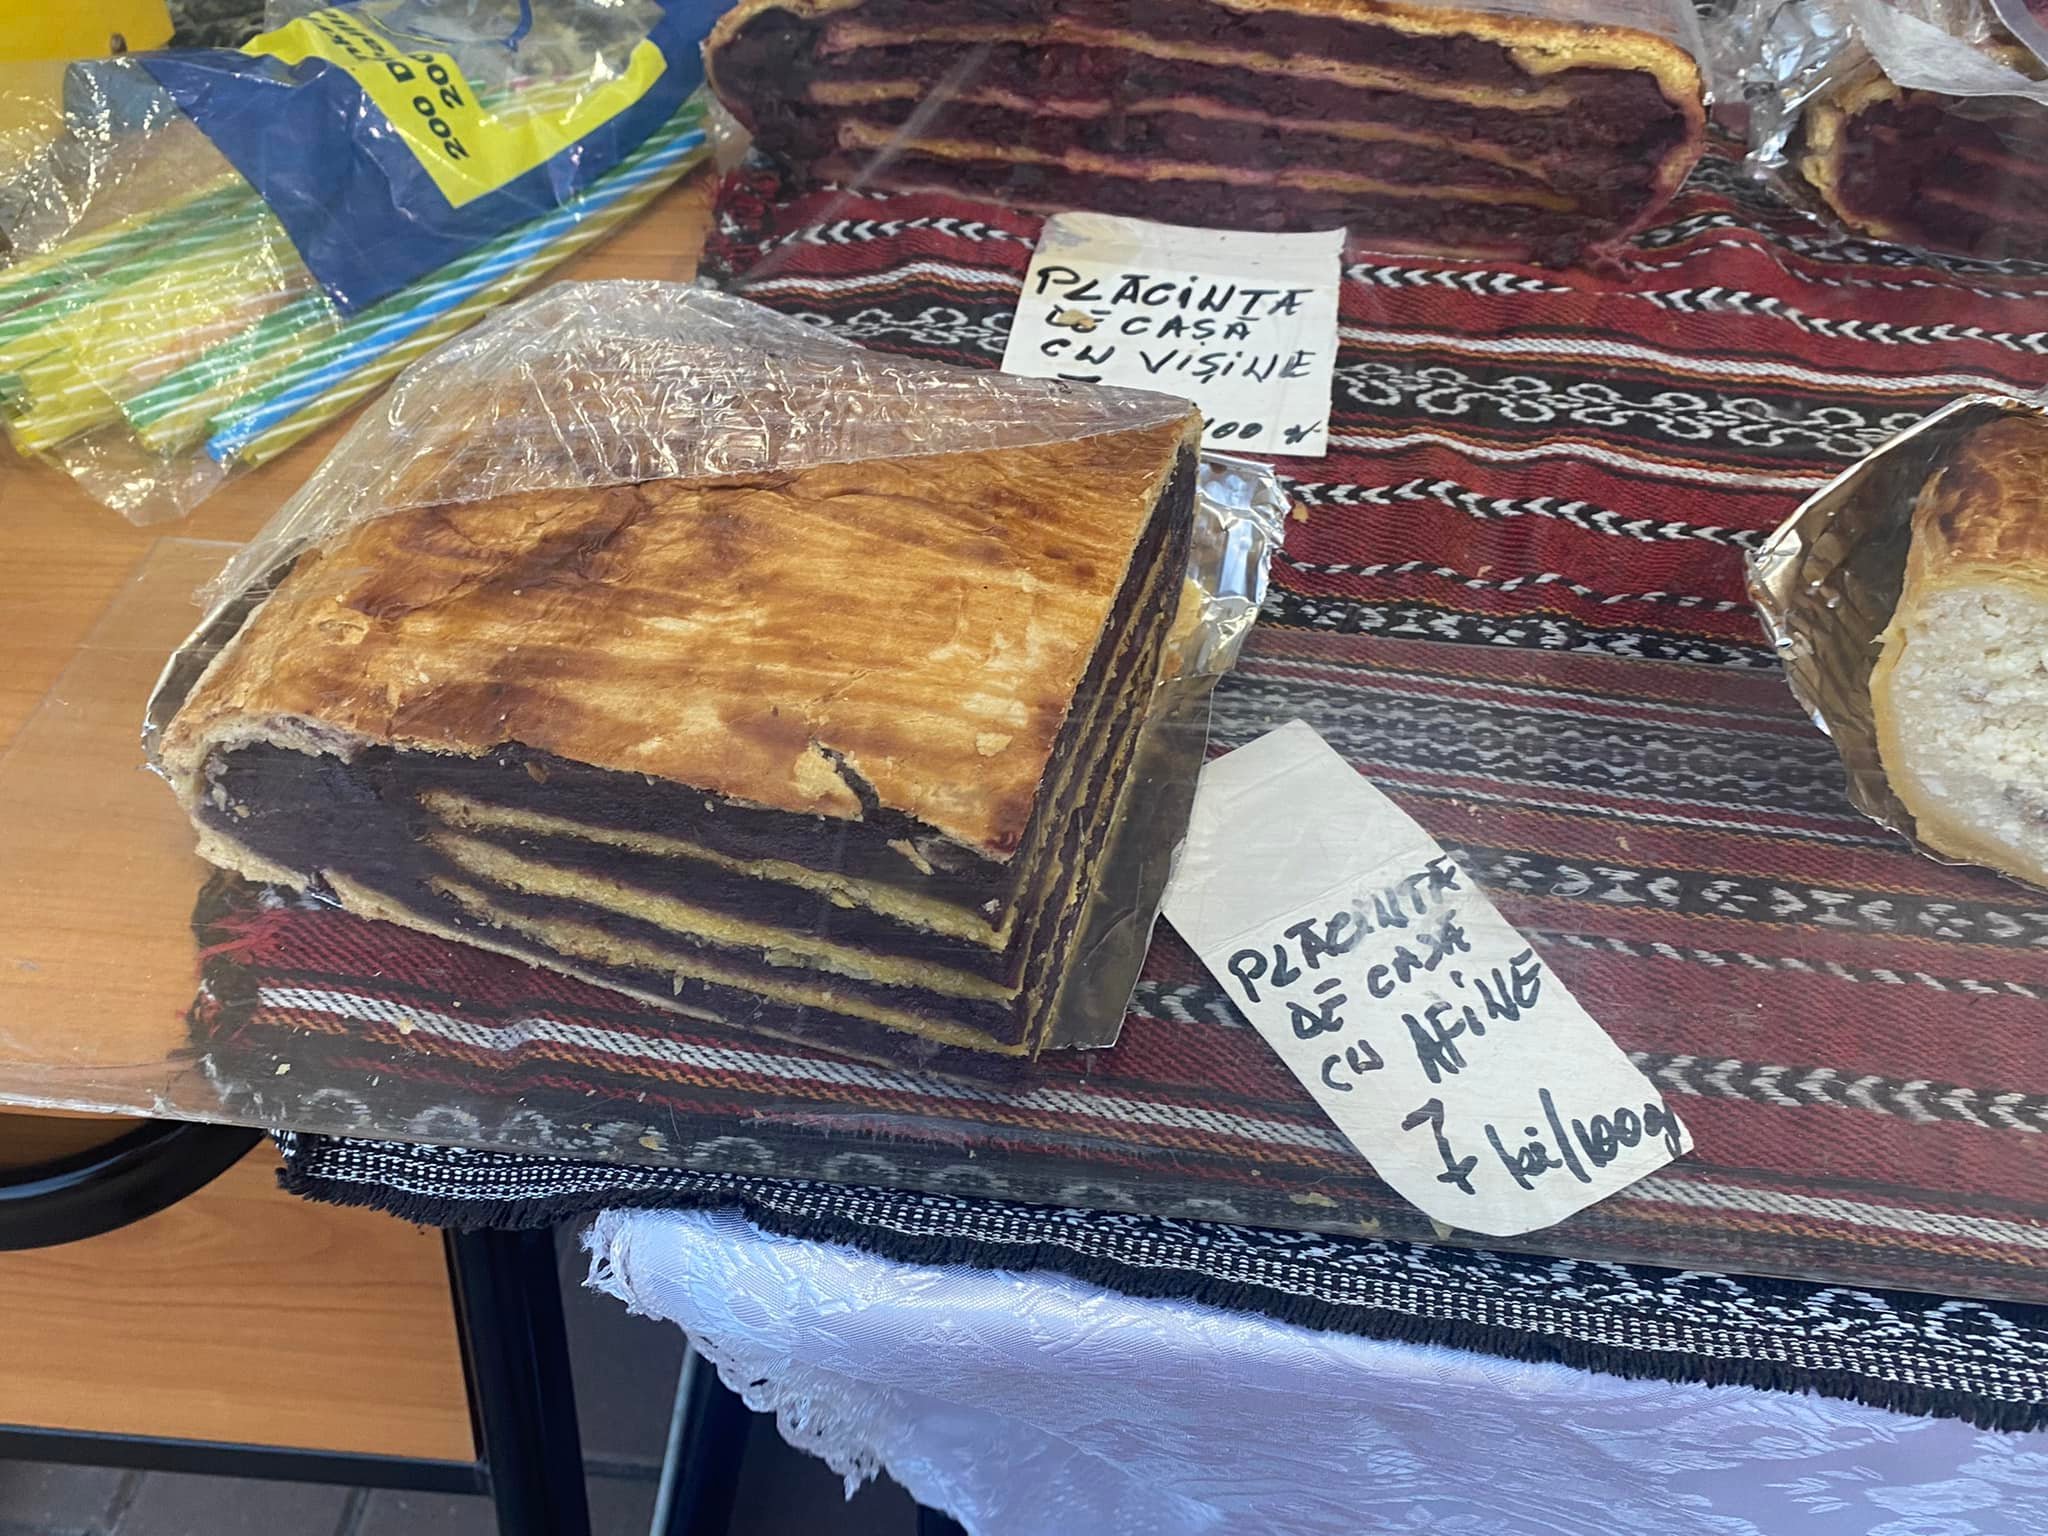 200 D
200
PLĂCINTĂ
DE CASĂ
CU VIȘINE
100 gr
PLĂCINTĂ
DE CASĂ
CU AFINE
7 lei/100g